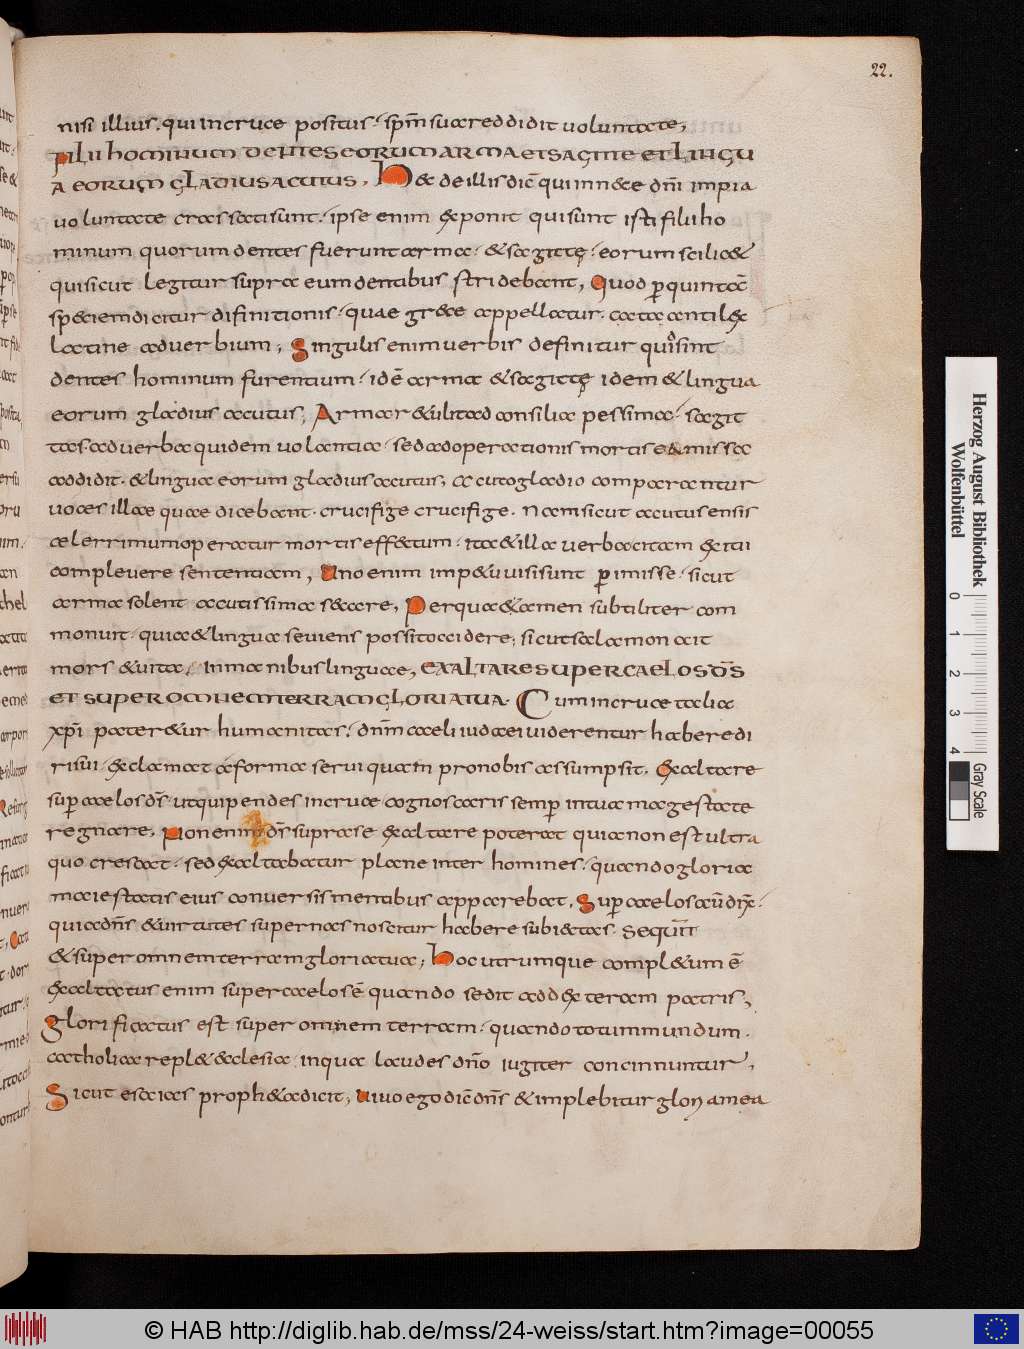 22.
nisi illius. qui in cruce positus. spm̄ suae reddidit voluntate;
FILII HOMINUM DENTES EORUM ARMA ET SAGITTE ET LINGU
A EORUM GLADIUS ACUTUS. Hęc de illis dic̄ qui in nece dn̄i impia
voluntate crassati sunt. ipse enim exponit qui sunt isti filii ho
minum quorum dentes fuerunt arma. & sagittę. eorum scilic&
qui sicut legitur supra eum dentibus stridebant, Quod p̱ quintā
speciem dicitur difinitionis. quae grece appellatur. cata antilex
latine ad verbium; Singulis enim verbis definitur qui sint
dentes hominum furentium. idē arma & sagittę idem & lingua
eorum gladius acutus; Arma r&ulit ad consilia pessima. sagit
tas. ad verba quidem volantia. sed ad operationis mortis emissa
addidit. & lingua eorum gladius acutus; Acuto gladio comparantur
voces illae quae dicebant. crucifige crucifige. Nam sicut acutus ensis
celerrimum operatur mortis eff&tum. ita & illa verba citam exitii
complevere sententiam, Uno enim imp&u visi sunt p̱imisse. sicut
arma solent acutissima secare, Perqua & amen subtiliter com
monuit. quia & lingua seviens possit occidere; sicut salamon ait
mors & uita. in manibus linguae, EXALTARE SUPER CAELOS DS̄
ET SUPER OMNEM TERRAM GLORIA TUA. Cum in cruce talia
xp̄i pater&ur humanitas. dnm̄ caeli iudaei viderentur habere di
risui. exclamat a forma servi quam pro nobis assumpsit. Exaltare
sup̱ caelos ds̄. ut qui pendes in cruce cognoscaris semp̱ in tua magestate
regnare. Non enim ds̄ supra se exaltare poterat quia non est ultra
quo crescat. sed exaltabatur plane inter homines. quando gloria
maiestatis eius conversis mentibus apparebat. Sup̱ caelos aū dix̄.
quia dn̄s & uirtutes supernas noscitur habere subi&as. SEQUIT̄
& super omnem terram gloria tua; Hoc utrumque compl&um ē
exaltatus enim super caelos ē quando sedit ad dexteram patris,
glorificatus est super omnem terram. quando totum mundum.
catholica repl&&clesia. in qua laudes dn̄o iugiter concinnuntur.
Sicut esaias proph&a dicit, Uiuo ego dic̄ dn̄s & implebitur gloria mea
Herzog August Bibliothek
Wolfenbüttel
0 1 2 3 4
Gray Scale
© HAB http://diglib.hab.de/mss/24-weiss/start.htm?image=00055